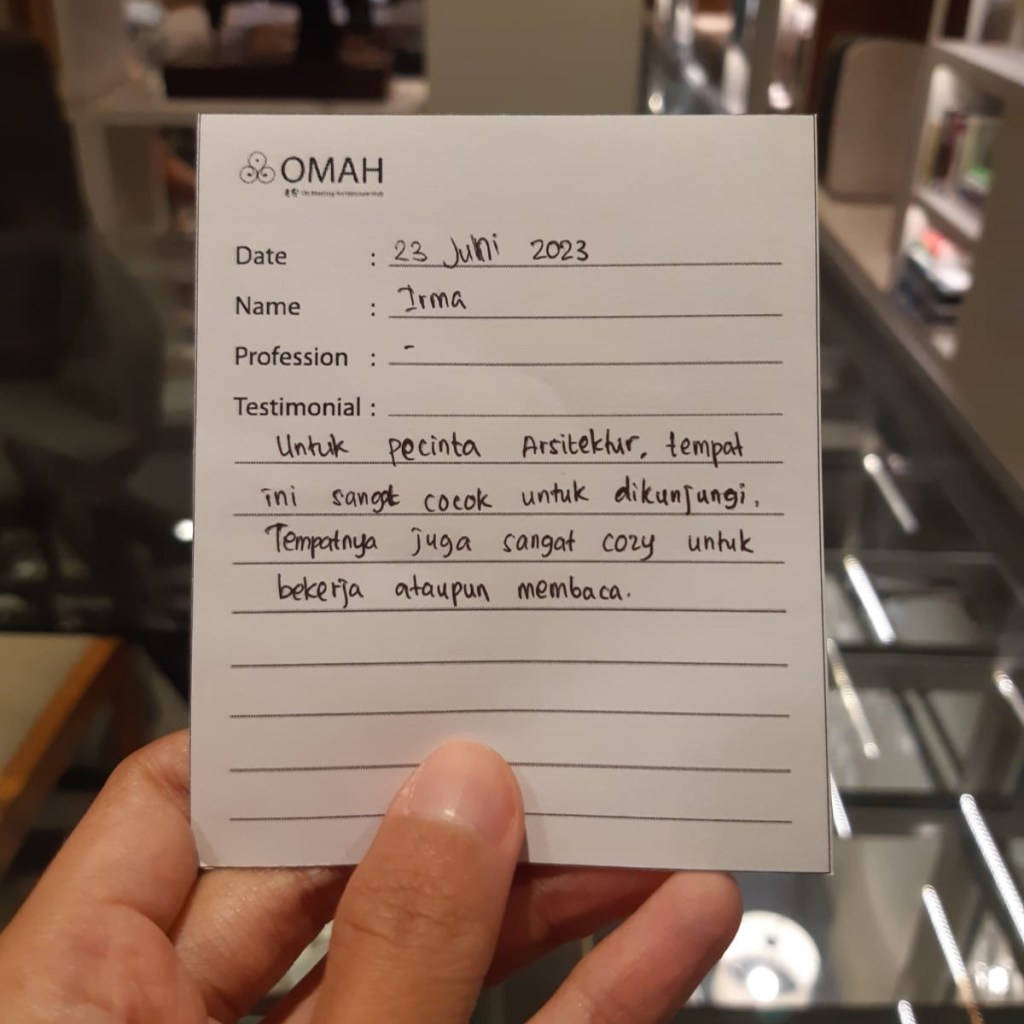 OMAH
Date : 23 Juni 2023
Name : Irma
Profession : -
Testimonial :
Untuk pecinta Arsitektur, tempat
ini sangat cocok untuk dikunjungi.
Tempatnya juga sangat cozy untuk
bekerja ataupun membaca.